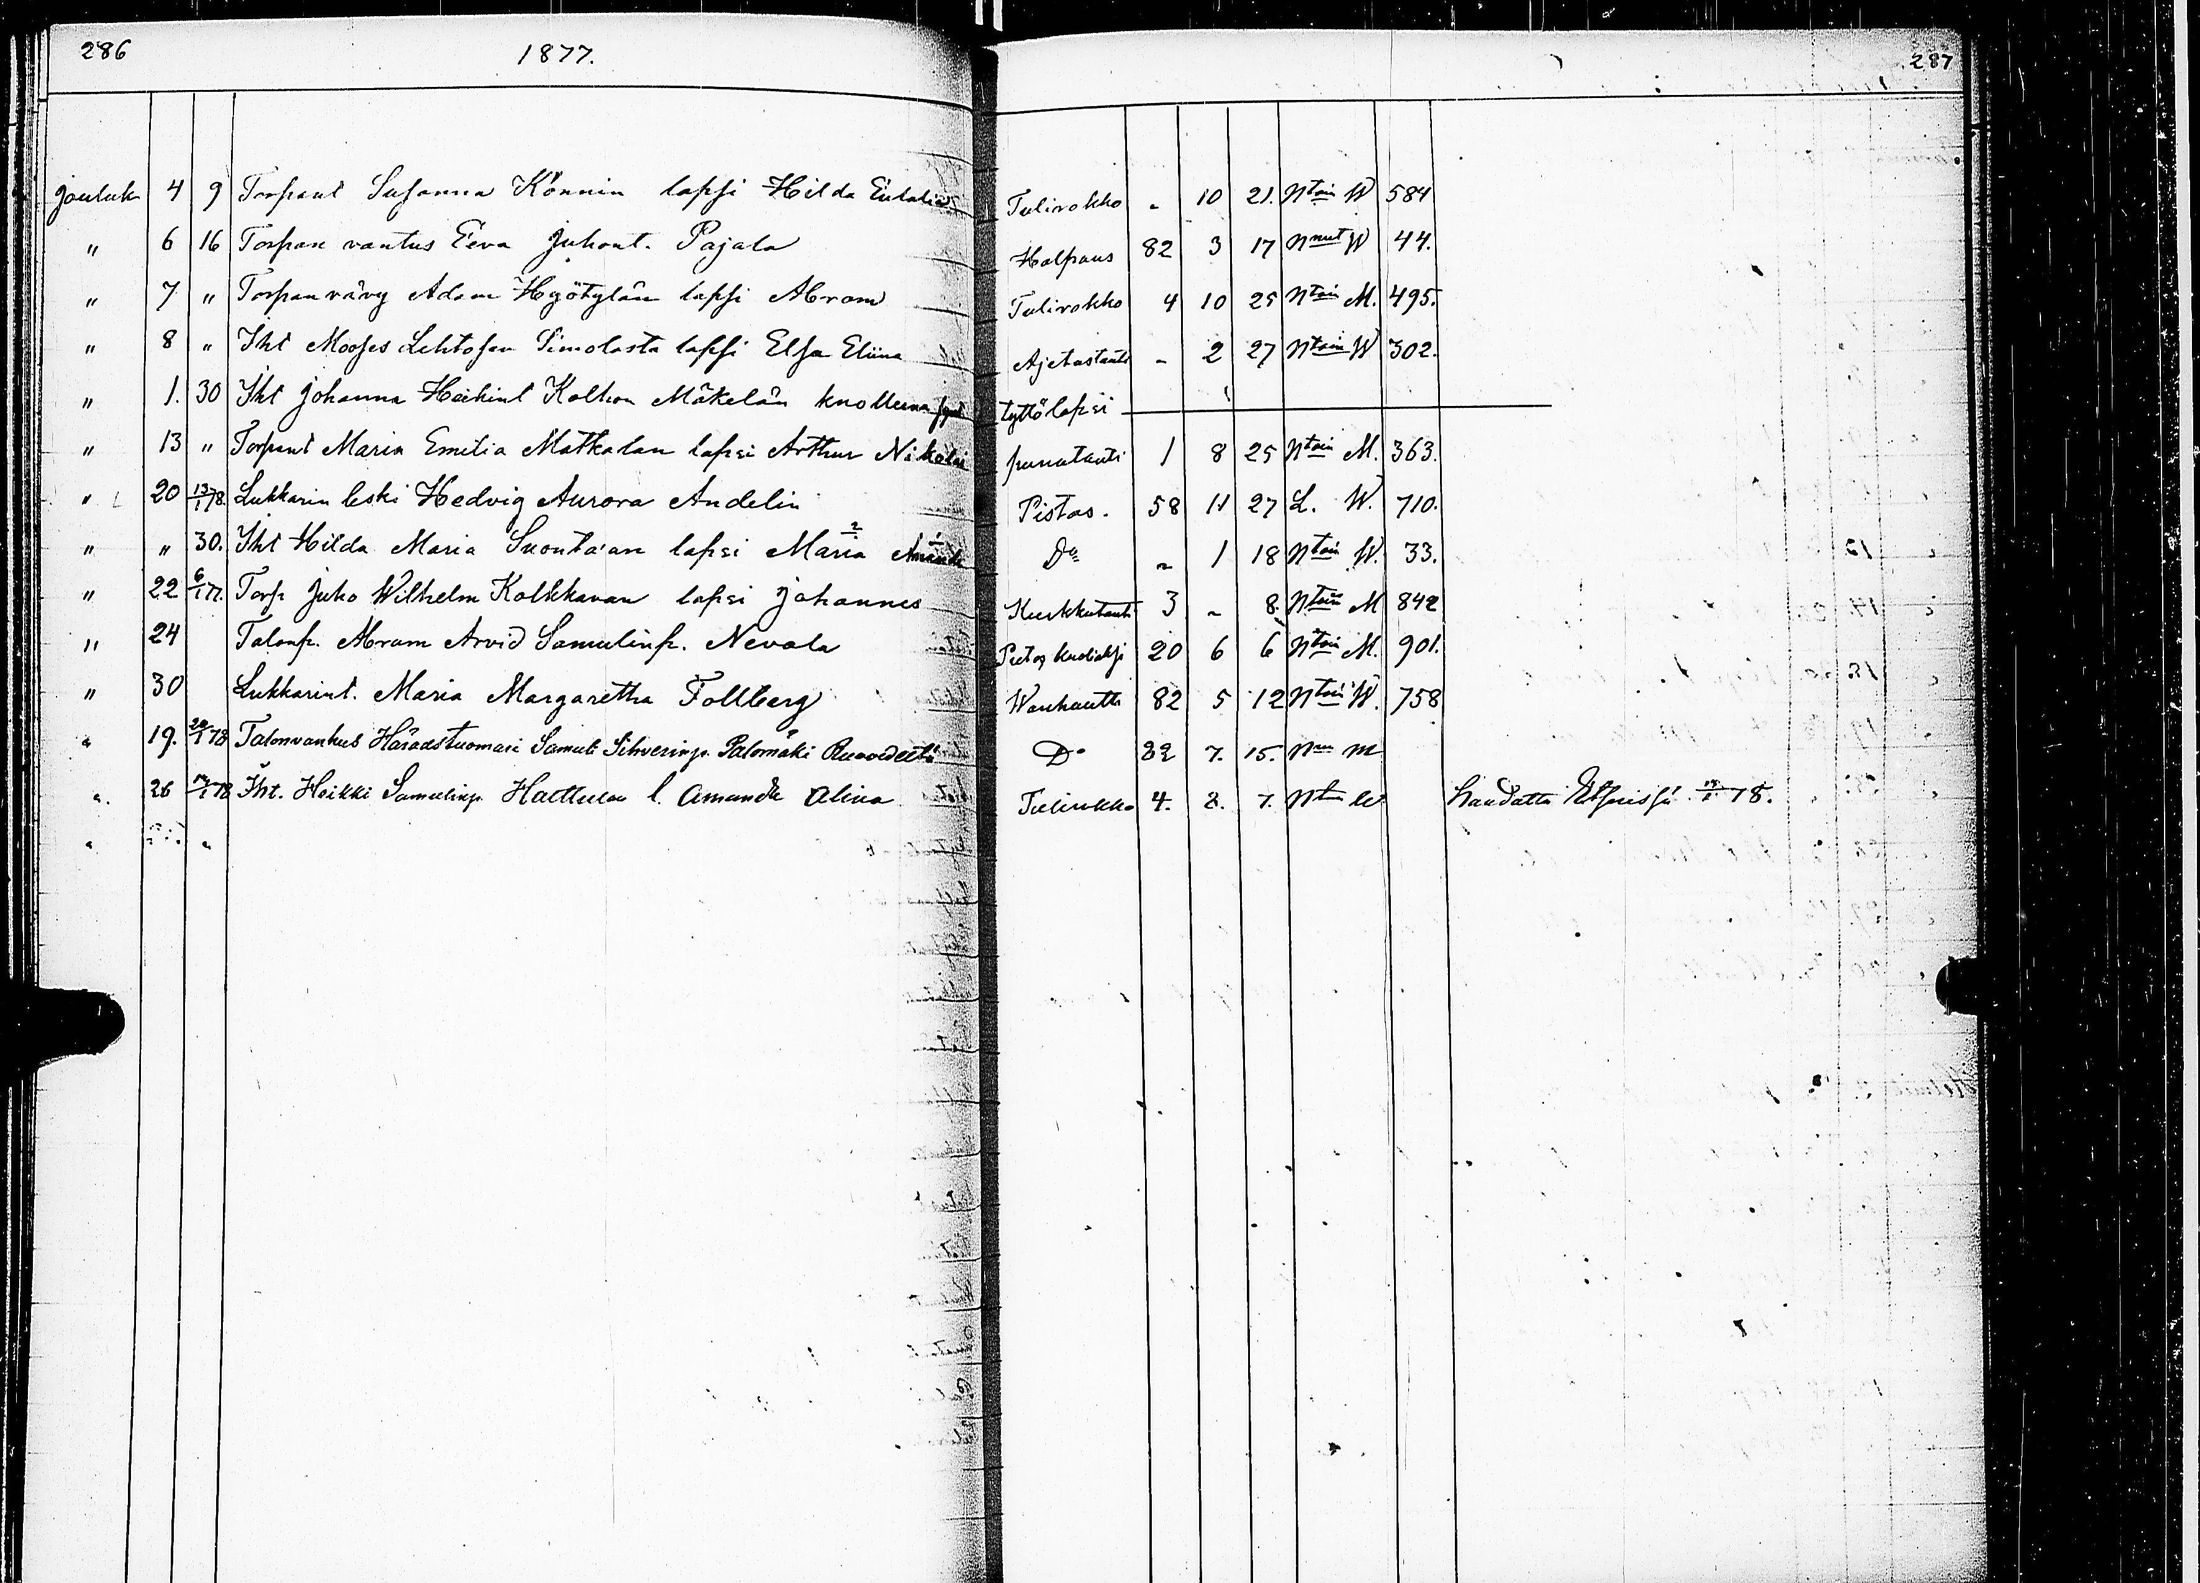 286 1877. 287
Jouluk 4 9 Torpant Susanna Könnin lapsi Hilda Eulalia Tulirokko - 10 21. Ntoin W 584
" 6 16 Torpan vanhus Eeva Juhont. Pajala Halpaus 82 3 17 Nnut W 44.
" 7 " Torpanvävy Adam Hyötylän lapsi Abram Tulirokko 4 10 25 Ntoin M. 495.
" 8 " Iht Mooses Lehtosen Simolasta lapsi Elsa Eliina Ajetustauti - 2 27 Ntoin W 302.
" 1. 30 Iht Johanna Heikint Kalhon Mäkelän kuolleena synt tyttölapsi
" 13 " Torpant Maria Emilia Matkalan lapsi Arthur Nikolai punatauti 1 8 25 Ntoin M. 363.
" 20 13/1 78. Lukkarin leski Hedvig Aurora Andelin Pistos. 58 11 27 L. W. 710.
" " 30. Iht Hilda Maria Suontaan lapsi Maria Amanda Do - 1 18 Ntoin W. 33.
" 22 6/1 77. Torp Juho Wilhelm Kolkkavan lapsi Johannes Kurkkutauti 3 - 8. Ntoin M 842
" 24 Talonp. Abram Arvid Samulinp. Nevala 20 6 6 Ntoin M. 901.
" 30 Lukkarint. Maria Margaretha Follberg Wanhuutta 82 5 12 Ntoin W. 758
" 19. 20/1 78 Talonvanhus Häradstuomari Samuli Sihverinp. Palomäki Do 82 7. 15. M
" 26 /1 78 Iht. Heikki Samulinp. Hattulan l. Amanda Alina Tulirokko 4. 8. 7. Ntoin W haudattu 78.
" "